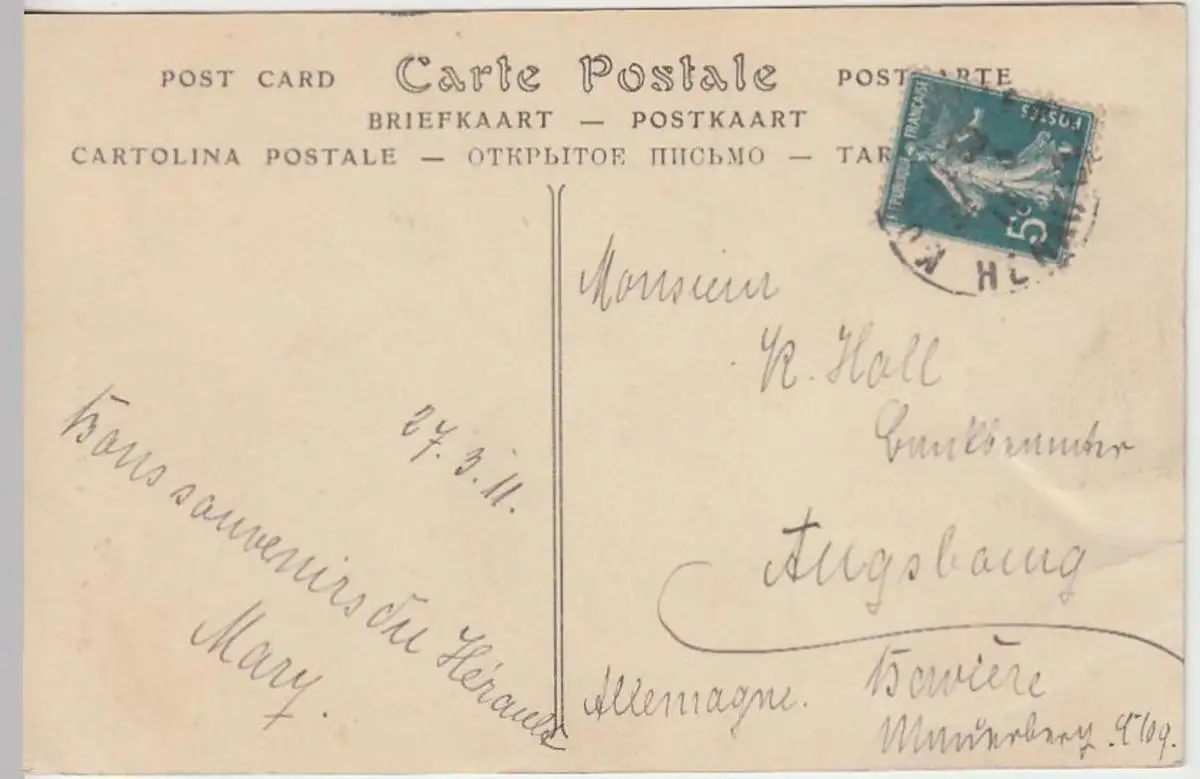 POST CARD Carte Postale POSTCARTE
BRIEFKAART — POSTKAART
CARTOLINA POSTALE — ОТКРЫТОЕ ПИСЬМО — TAR
REPUBLIQUE FRANÇAISE
POSTES
5c
27.3.11.
Bons souvenirs du Hérault
Mary.
Monsieur
K. Holl
Bankbeamter
Augsbourg
Bavière
Allemagne.